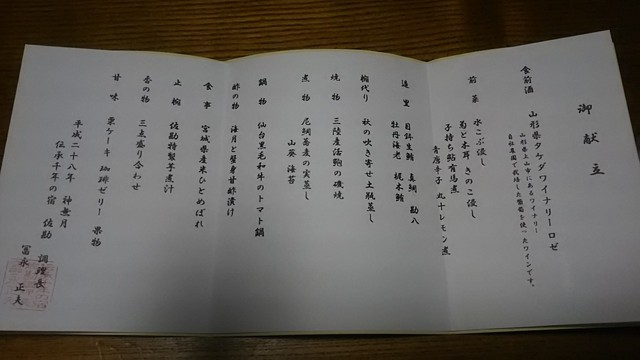 御献立
食前酒 山形県タケダワイナリーロゼ
山形県上山市にあるワイナリー
自社農園で栽培した葡萄を使ったワインです。
前菜 水こぶ浸し
菊と木耳 きのこ浸し
子持ち鮎有馬煮
青唐辛子 丸十レモン煮
造里 目鉢生鮪 真鯛 勘八
牡丹海老 梶木鮪
椀代り 秋の吹き寄せ土瓶蒸し
焼物 三陸産活鮑の磯焼
煮物 尼鯛蕎麦の実蒸し
山葵 海苔
鍋物 仙台黒毛和牛のトマト鍋
酢の物 海月と蟹身甘酢漬け
食事 宮城県産米ひとめぼれ
止椀 佐勘特製芋煮汁
香の物 三点盛り合わせ
甘味 栗ケーキ 珈琲ゼリー 果物
平成二十八年 神無月
伝承千年の宿 佐勘
調理長
冨永 正夫